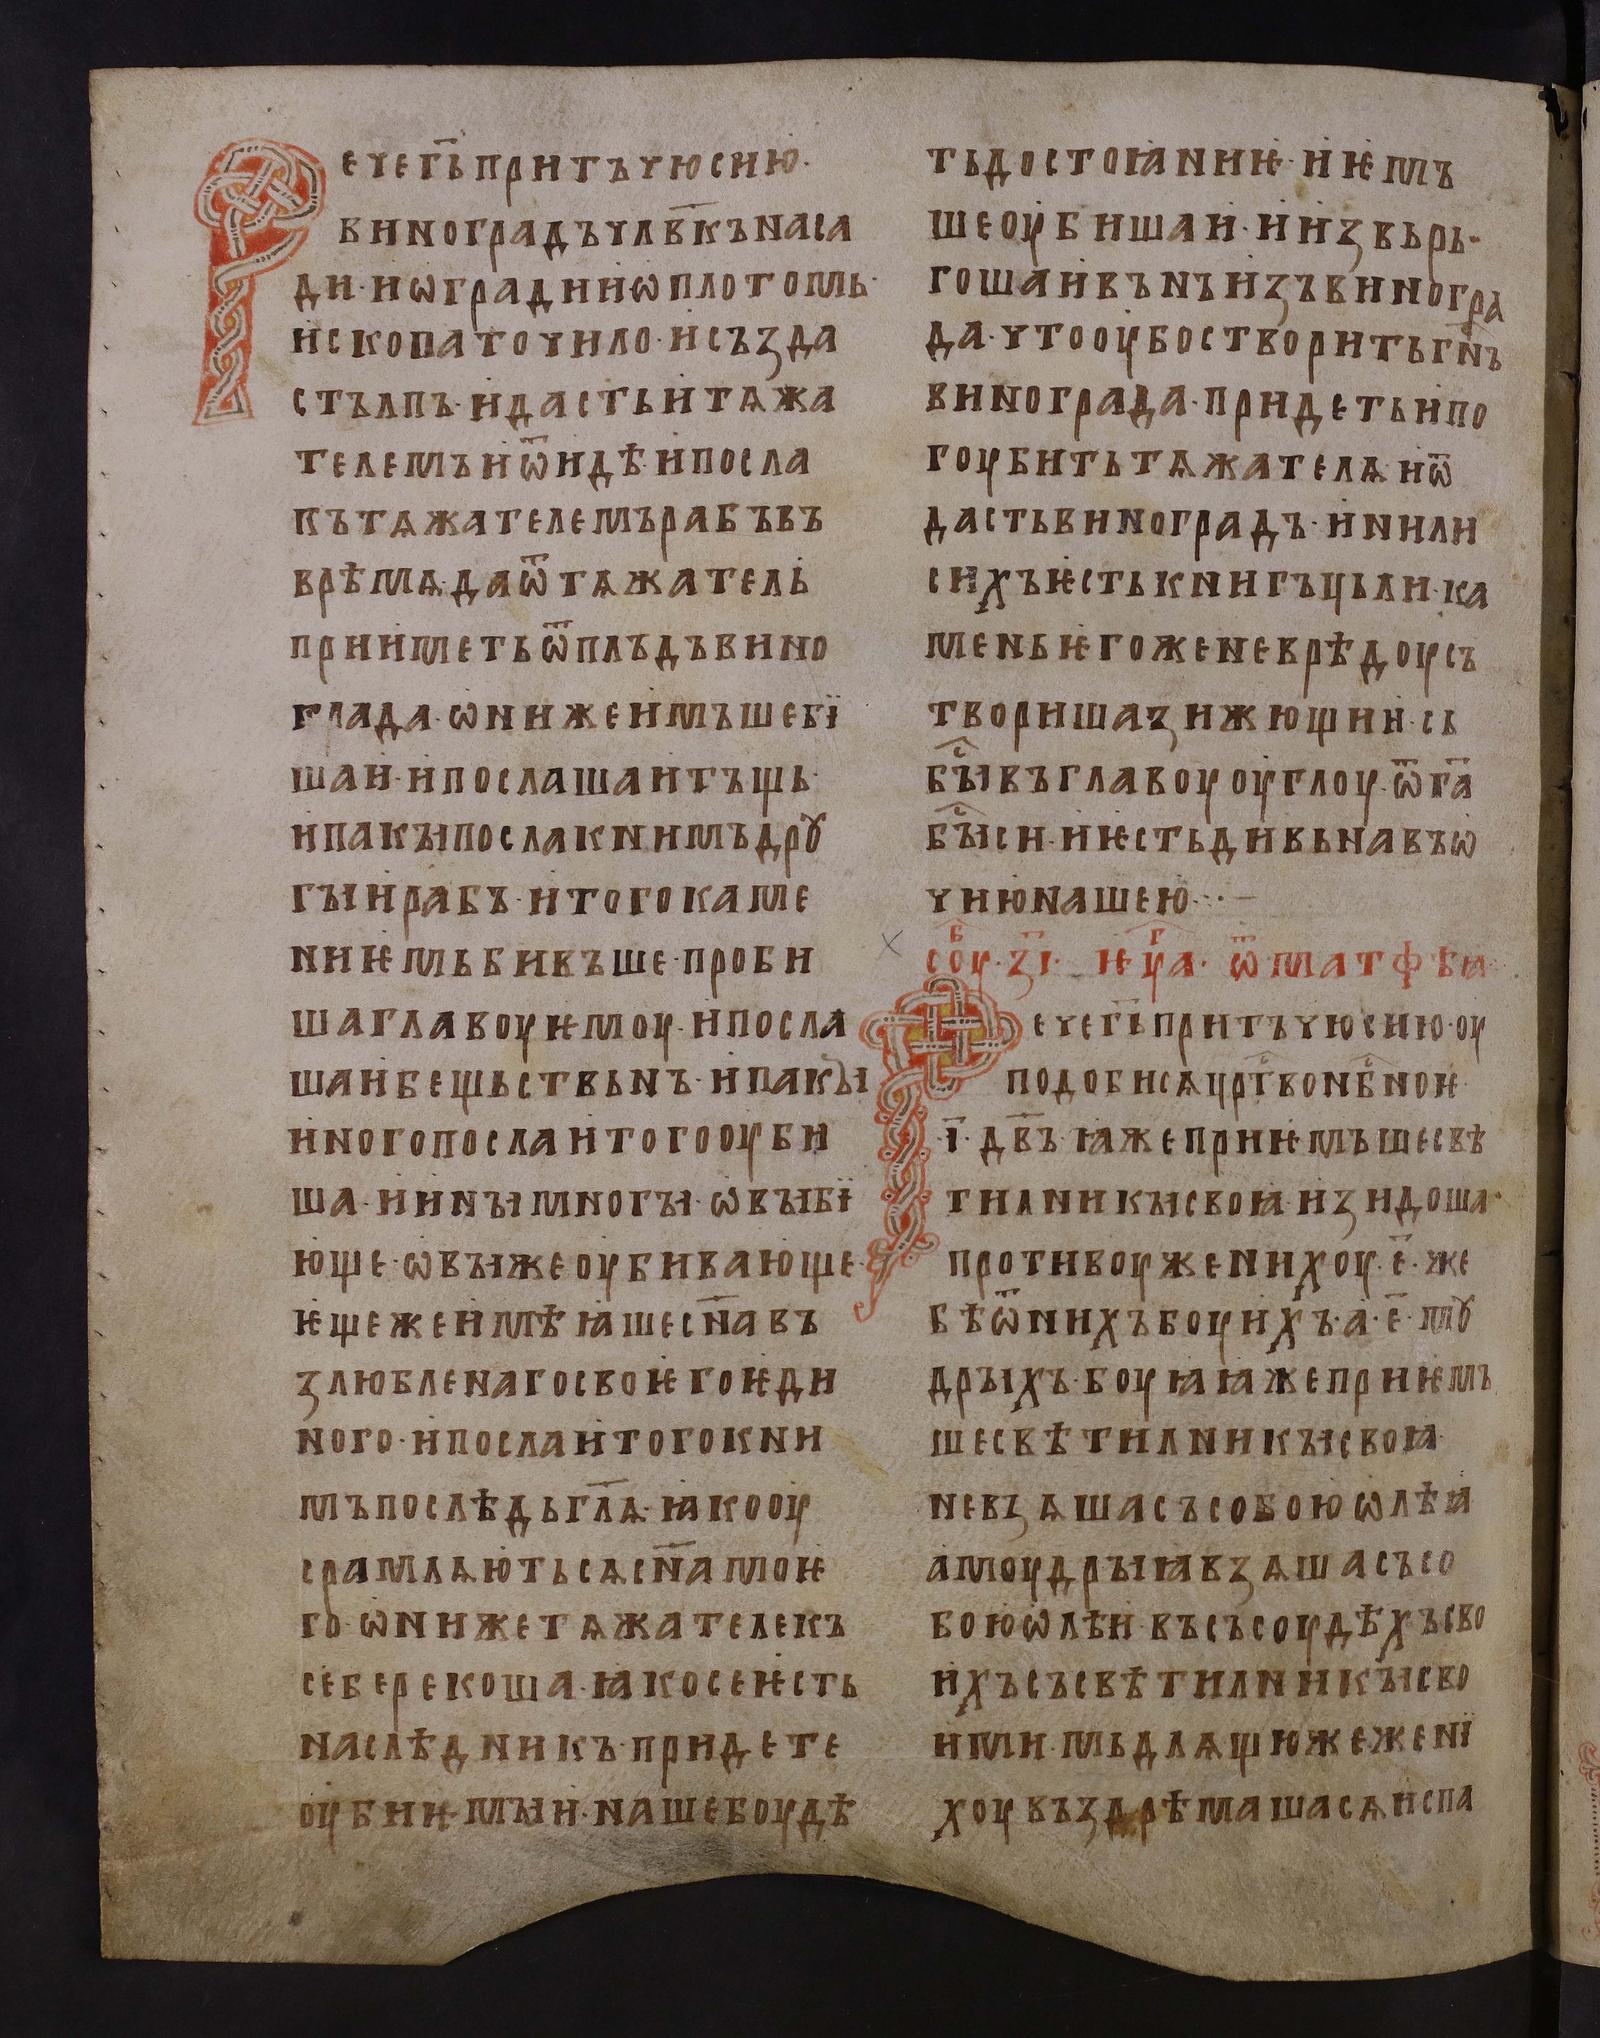 Рече г҃ь притъчю сию·
виноградъ чл҃вкъ наса
ди· и ѡгради и ѡплотомь·
ископа точило· и създа
стълпъ· и дасть и тѧжа
телемъ и ѿиде· и посла
къ тѧжателемъ рабъ въ
врѣмѧ· да ѿ тѧжатель
прииметь ѿ плъдъ вино
града· ѡни же имъше бї
ша и· и послаша и тъщь·
и пакꙑ посла к нимъ дрꙋ
гꙑи рабъ· и того каме
ниѥмь бивъше· проби
ша главоу ѥмоу· и посла
ша и бещьствьнъ· и пакꙑ
иного посла и того оуби
ша· и инꙑ многꙑ· ѡвꙑ бї
юще· ѡвꙑ же оубивающе·
ѥще же имѣꙗше с҃на въ
злюбленаго своѥго ѥди
ного· и посла и того к ни
мъ послѣдь гл҃ѧ· ꙗко оу
срамлѧються с҃на моѥ
го· ѡни же тѧжателе къ
себе рекоша· ꙗко се ѥсть
наслѣдникъ· придете
оубиѥмꙑ и· наше боудѣ
ть достоꙗниѥ· и ѥмъ
ше оубиша и· и извьрь·
гоша и вънъ из виногра
да· что оубо створить г҃нъ
винограда· придеть и по
гоубить тѧжателѧ· и ѿ
дасть виноградъ· инѣ ли
сихъ ѥсть книгъ чьли· ка
мень ѥгоже не врѣдоу съ
твориша зижющии· сь
бꙑ҇ въ главоу оуглоу· ѿ г҃а
бꙑ҇ си· и ѥсть дивьна въ ѡ
чию нашею···—
соу҇б· з҃і· ѥу҇га· ѿ матфѣꙗ
Рече г҃ь притъчю сию· оу
подобисѧ цр҇тво нб҇ноѥ
·і҃· дв҃ъ ꙗже приѥмъше свѣ
тилникꙑ своꙗ· изидоша·
противоу женихоу· е҃· же
бѣ ѿ нихъ боуихъ· а· е҃· мꙋ
дрꙑхъ· боуꙗꙗ же приѥмъ
ше свѣтилникꙑ своꙗ·
не взѧша съ собою ѡлѣꙗ
а моудрꙑꙗ взѧша съ со
бою ѡлѣи· въ съсоудѣхъ сво
ихъ съ свѣтилникꙑ сво
ими· мьдлѧщю же женї
хоу въздрѣмаша сѧ и спа